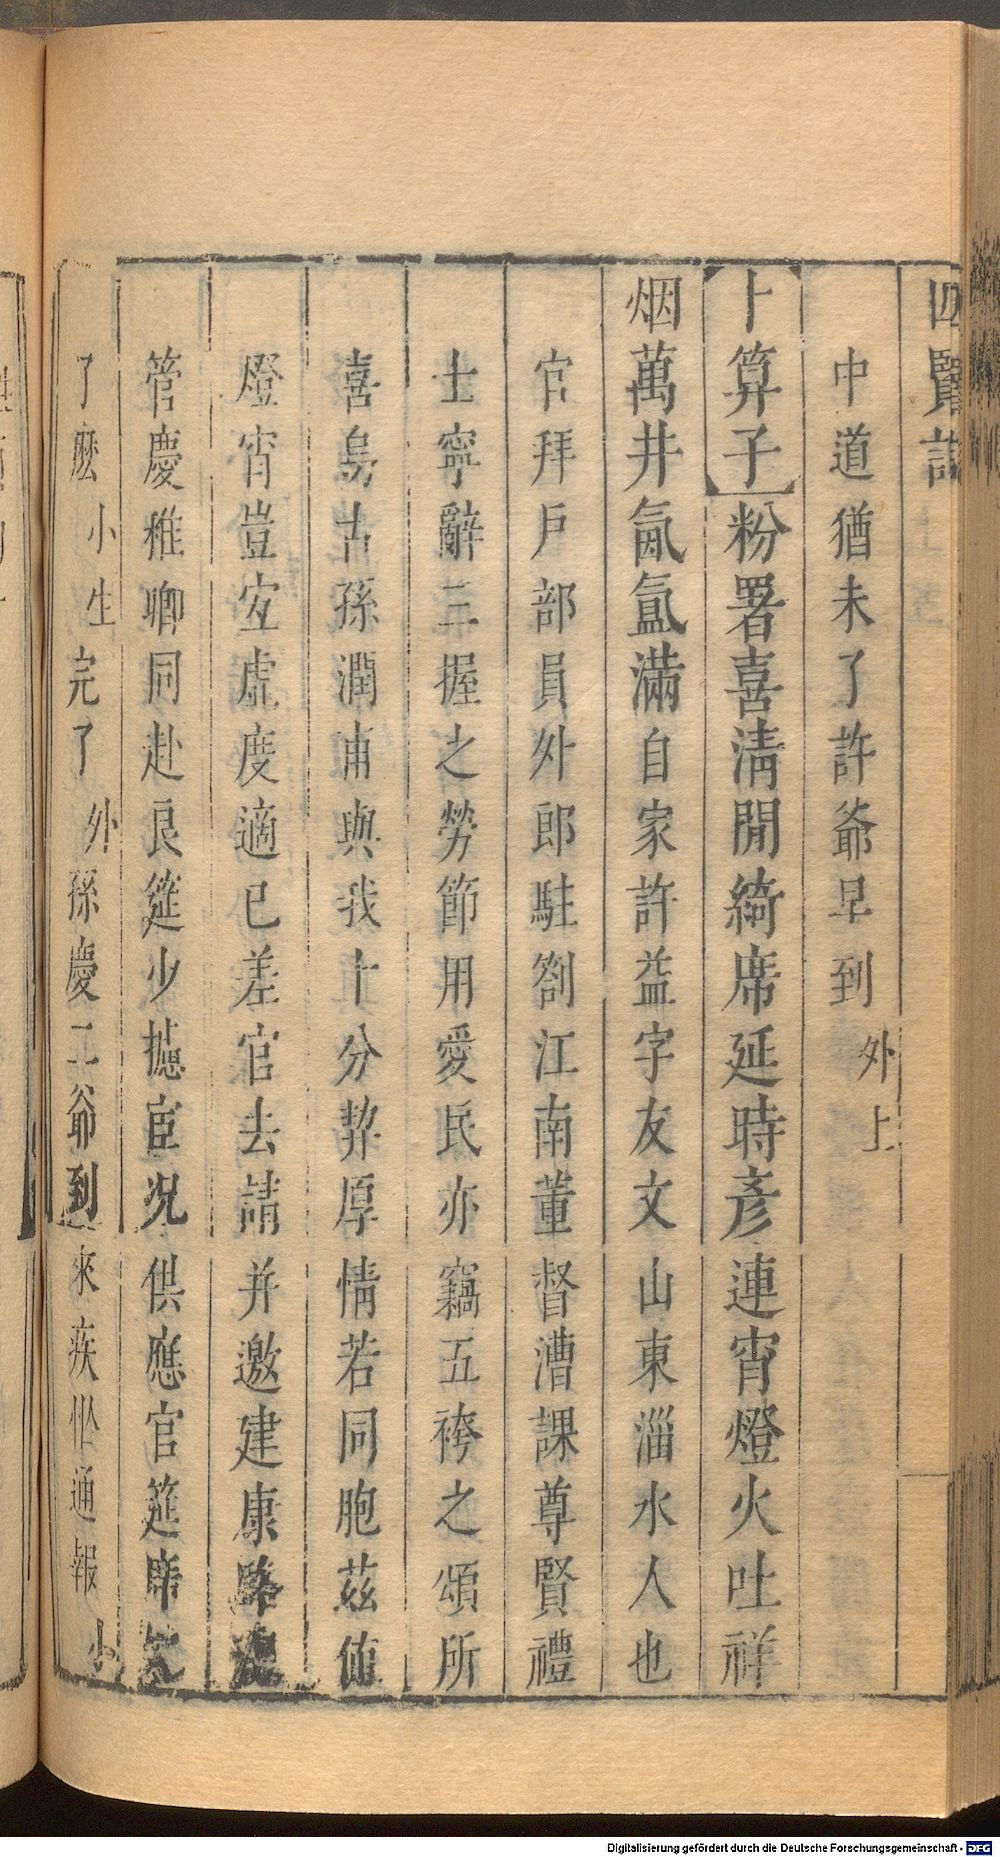 四賢記
中道猶未了許爺早到 外上
卜算子 粉署喜清閒綺席延時彥連宵燈火吐祥
烟萬井氤氳滿自家許益字友文山東淄水人也
官拜戶部員外郎駐劄江南董督漕課尊賢禮
士寧辭三握之勞節用愛民亦竊五袴之頌所
喜烏古孫潤甫與我十分契厚情若同胞茲値
燈宵豈宜虛度適已差官去請并邀建康路
管慶稚卿同赴良筵少攄宦况供應官筵席
了麽 小生 完了 外 孫慶二爺到來疾忙通報 小
Digitalisierung gefördert durch die Deutsche Forschungsgemeinschaft - DFG